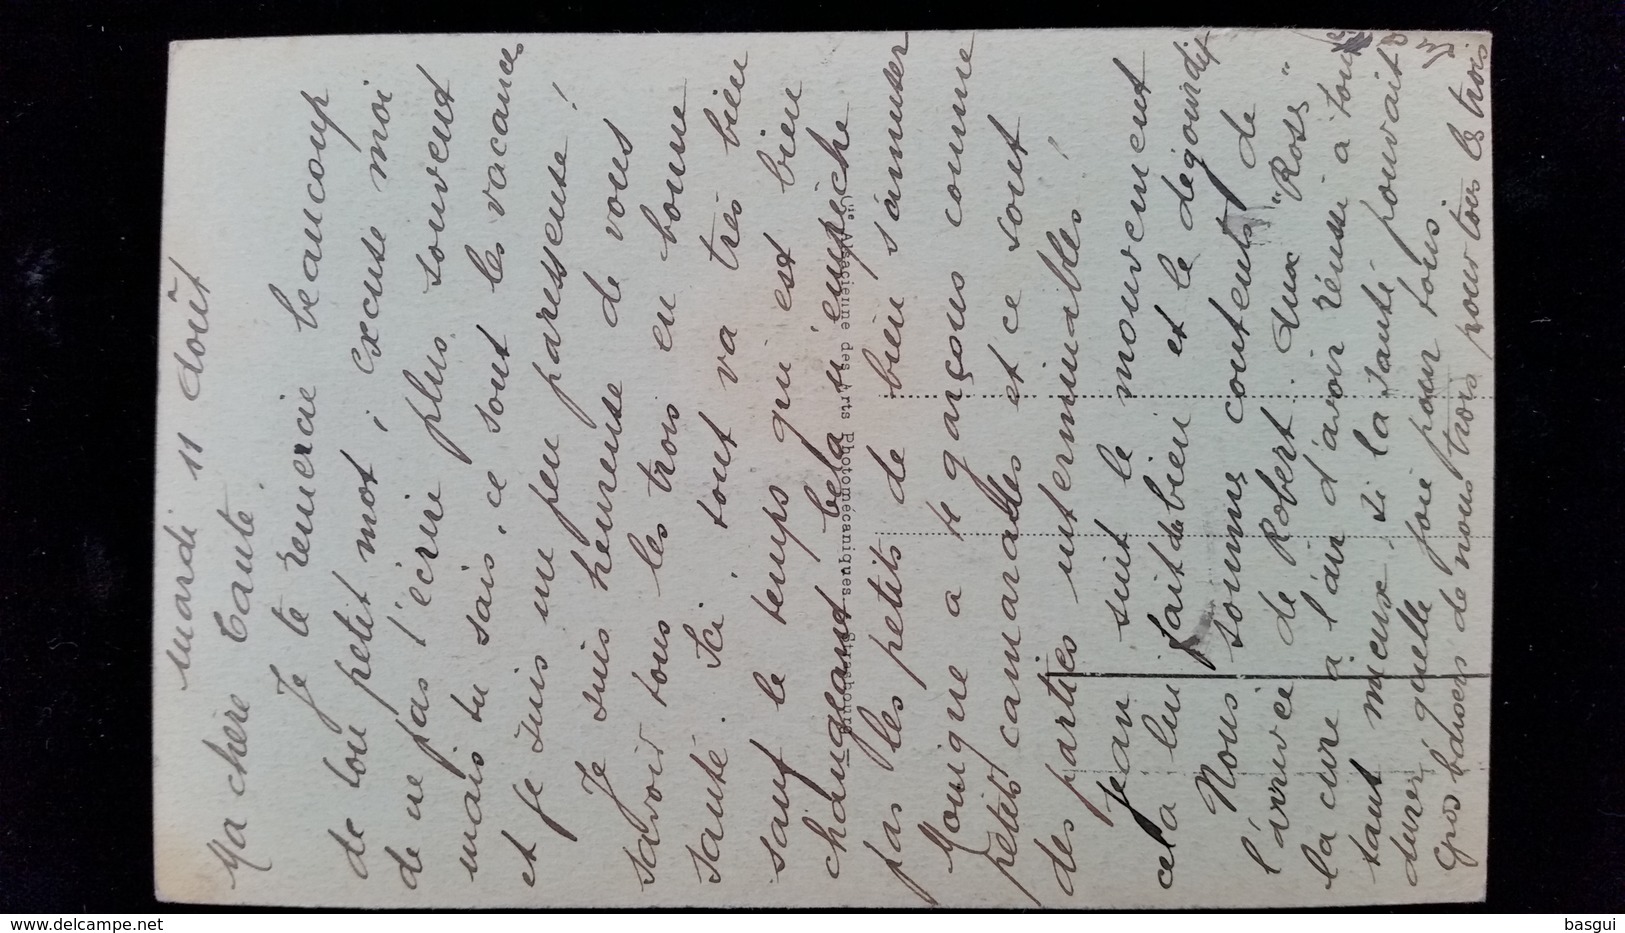 mardi 11 août
Ma chère Tante.
Je te remercie beaucoup
de ton petit mot, excuse moi
de ne pas t'écrire plus souvent
mais tu sais, ce sont les vacances
et je suis une peu paresseuse!
Je suis heureuse de vous
savoir tous les trois en bonne
santé. Ici, tout va très bien
sauf le temps qui est bien
changeant cela n'empêche
pas les petits de bien s'amuser
Monique a de garçons comme
petits camarades et ce sont
des parties interminables!
Jean suit le mouvement
cela lui fait du bien et le dégourdit
Nous sommes contents de
l'arrivée de Robert. dux "Ross"
la cure a l'air d'avoir réussi à tous
tant mieux. si la santé pouvait
durer quelle joie pour tous
Gros baisers de nous trois pour tous les trois
Cie Alsacienne des Arts Photomécaniques - Strasbourg
basgui